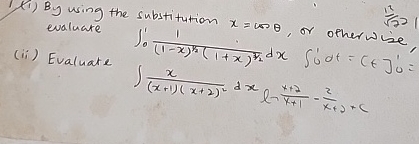 1 (i) By using the substitution x = cos θ, or otherwise,
evaluate ∫₀¹ 1/((1-x)^½ (1+x)^3/2) dx ∫₀¹ dt = [t]₀¹ =
(ii) Evaluate
∫ x/((x+1)(x+2)² dx ln (x+2)/(x+1) - 2/(x+2) + c